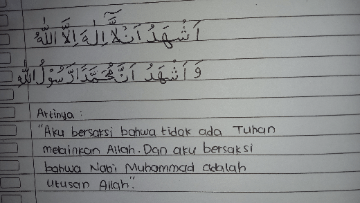 اَشْهَدُ اَنْ لَّآ اِلٰهَ اِلَّا اللّٰهُ
وَ اَشْهَدُ اَنَّ مُحَمَّدًا رَّسُوْلُ اللّٰهِ
Artinya :
"Aku bersaksi bahwa tidak ada Tuhan
melainkan Allah. Dan aku bersaksi
bahwa Nabi Muhammad adalah
utusan Allah".